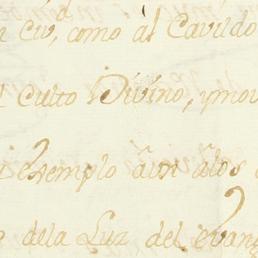 ciu.d, como al Cavildo
Culto Divino, ymov
exemplo âun alos
dela Luz del evang